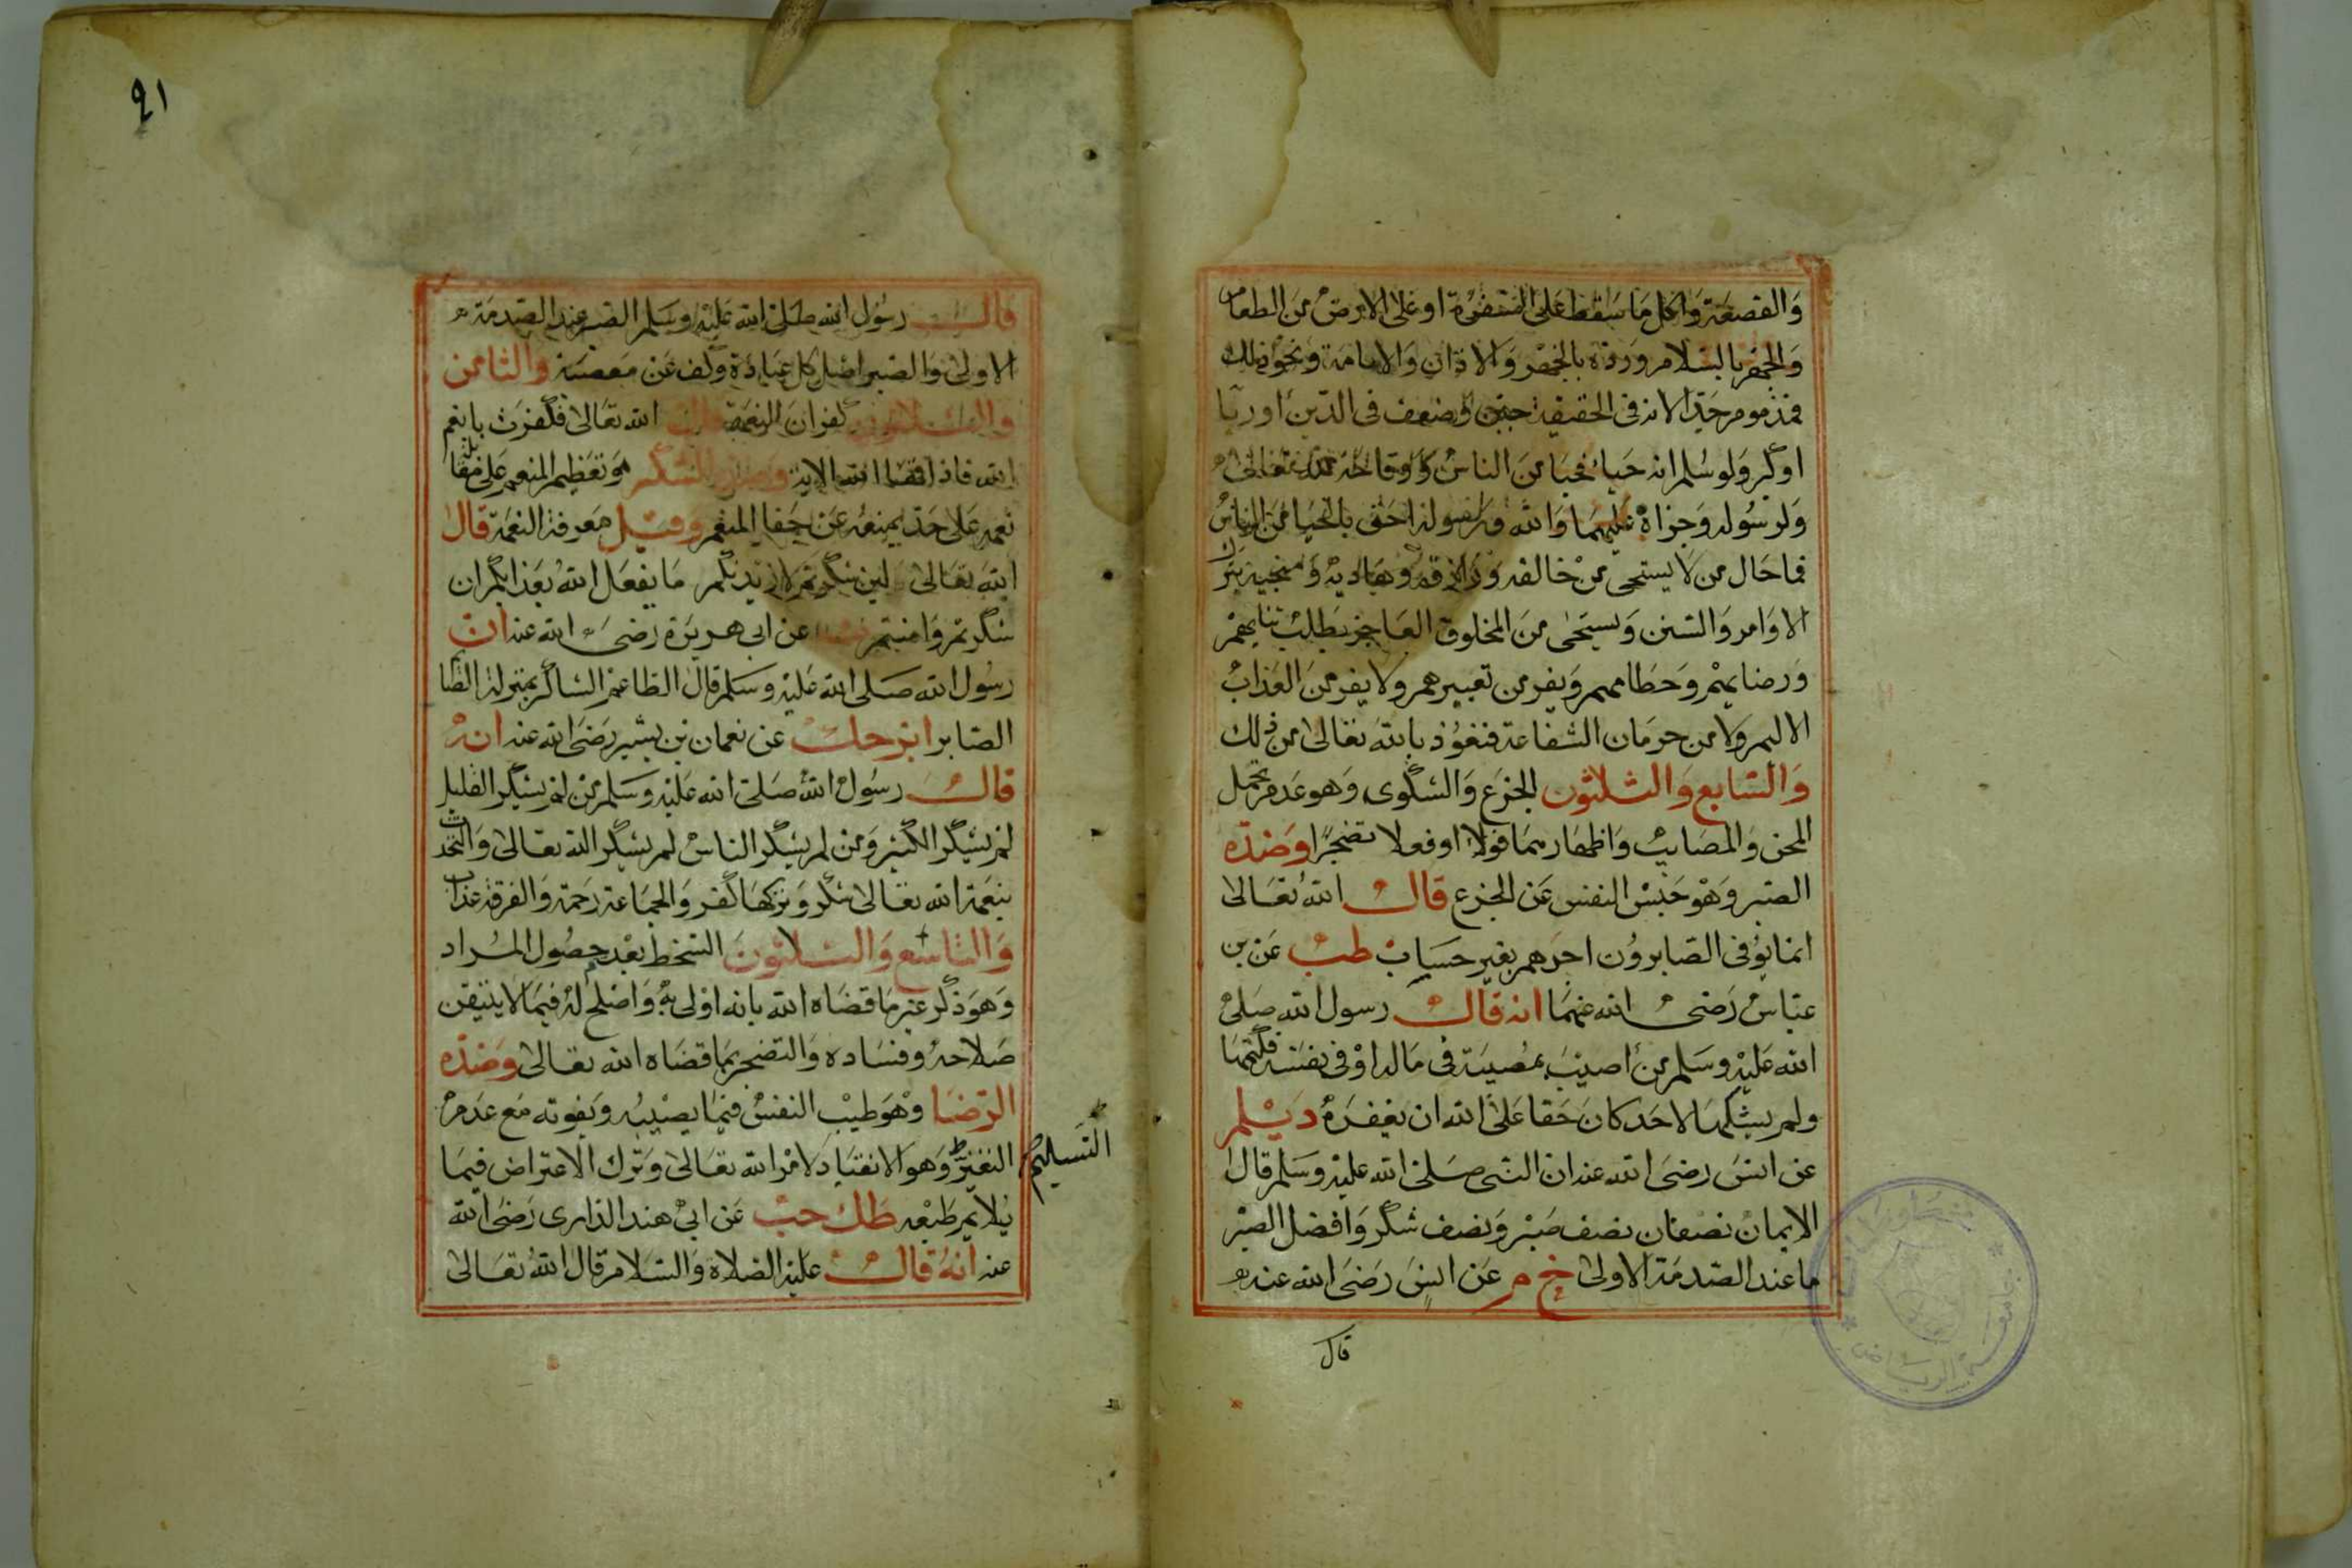 والقصعة واكل ما سقط على السفرة او على الارض من الطعام
والجهر بالسلام ورده بالجهر والاذان والامامة ونحو ذلك
فمذموم جدا لانه فى الحقيقة جبن وضعف فى الدين او ريا
او كبر ولو سلم انه حياء فحيا من الناس ووقاحة لله تعالى
ولرسوله وجراة عليهما والله ورسوله احق بالحيا من الناس
فما حال من لا يستحى من خالقه ورازقه وهاديه ومنجيه بترك
الاوامر والسنن ويستحى من المخلوق العاجز يطلب ثنايهم
ورضايهم وحطامهم ويفر من تعييرهم ولا يفر من العذاب
الاليم ولا من حرمان الشفاعة فنعوذ بالله تعالى من ذلك
والسابع والثلثون الجزع والشكوى وهو عدم تحمل
المحن والمصايب واظهارهما قولا او فعلا تضجرا وضده
الصبر وهو حبس النفس عن الجزع قال الله تعالى
انما يوفى الصابرون اجرهم بغير حساب طب عن بن
عباس رضى الله عنهما انه قال رسول الله صلى
الله عليه وسلم من اصيب بمصيبة فى ماله او فى نفسه فكتمها
ولم يشكها لاحد كان حقا على الله ان يغفره ديلم
عن انس رضى الله عنه ان النبى صلى الله عليه وسلم قال
الايمان نصفان نصف صبر ونصف شكر وافضل الصبر
ما عند الصدمة الاولى خ م عن انس رضى الله عنه
قال
٩١
قال رسول الله صلى الله عليه وسلم الصبر عند الصدمة
الاولى والصبر اصل كل عبادة وكف عن معصية والثامن
والثلاثون كفران النعمة قال الله تعالى فكفرت بانعم
الله فاذاقها الله الاية وضده الشكر هو تعظيم المنعم على مقابلة
نعمه على حد يمنعه عن جفا المنعم وقيل معرفة النعمة قال
الله تعالى لين شكرتم لازيدنكم ما يفعل الله بعذابكم ان
شكرتم وامنتم عن ابى هريرة رضى الله عنه ان
رسول الله صلى الله عليه وسلم قال الطاعم الشاكر بمنزلة الصايم
الصابر ابر حك عن نعمان بن بشير رضى الله عنه انه
قال رسول الله صلى الله عليه وسلم من لم يشكر القليل
لم يشكر الكثير ومن لم يشكر الناس لم يشكر الله تعالى والتحدث
بنعمة الله تعالى شكر وتركها كفر والجماعة رحمة والفرقة عذاب
والتاسع والثلاثون السخط بعدم حصول المراد
وهو ذكر غير ما قضاه الله بانه اولى به واصلح له فيما لا يتيقن
صلاحه وفساده والتضجر بما قضاه الله تعالى وضده
الرضا وهو طيب النفس فيما يصيبه ويفوته مع عدم
التغير وهو الانقياد لامر الله تعالى وترك الاعتراض فيما
التسليم
لا يلايم طبعه طك حب عن ابى هند الدارى رضى الله
عنه انه قال عليه الصلاة والسلام قال الله تعالى